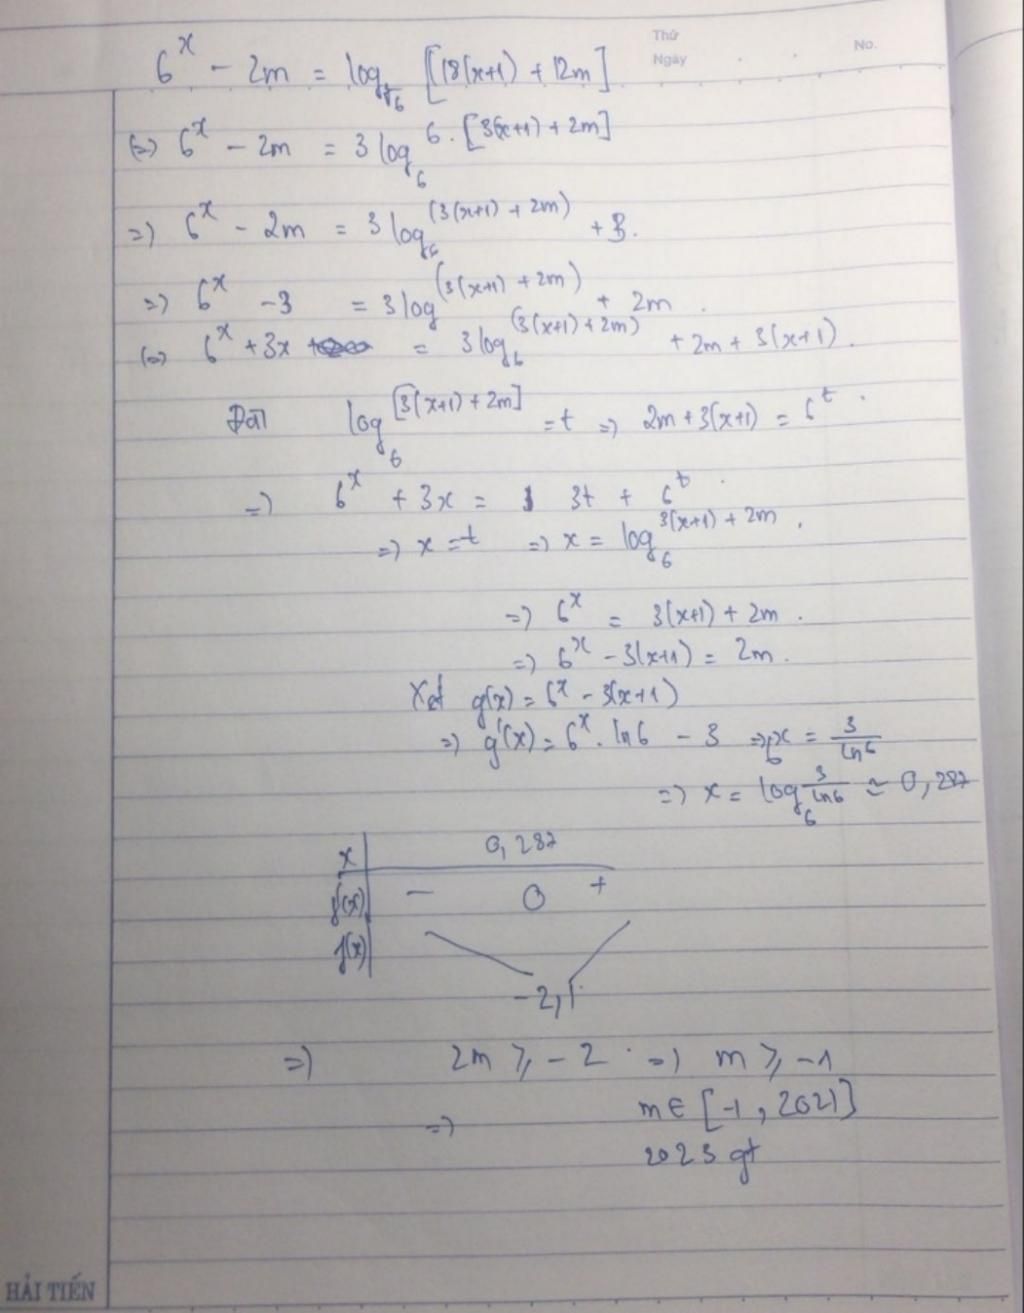 Thứ
Ngày
No.
6^x - 2m = log_∛6 [18(x+1) + 12m]
(=) 6^x - 2m = 3 log_6 6.[3(x+1) + 2m]
=) 6^x - 2m = 3 log_6 (3(x+1) + 2m) + 3.
=) 6^x - 3 = 3 log (3(x+1) + 2m) + 2m.
(=) 6^x + 3x = 3 log_6 (3(x+1) + 2m) + 2m + 3(x+1).
Đặt log_6 [3(x+1) + 2m] = t =) 2m + 3(x+1) = 6^t.
=) 6^x + 3x = 3t + 6^t.
=) x = t =) x = log_6 3(x+1) + 2m.
=) 6^x = 3(x+1) + 2m.
=) 6^x - 3(x+1) = 2m.
Xét g(x) = 6^x - 3(x+1)
=) g'(x) = 6^x . ln6 - 3 =) 6^x = 3/ln6
=) x = log_6 3/ln6 ≃ 0,287
x 0,287
f'(x) - 0 +
f(x)
-2,1
=) 2m ⩾ -2 . =) m ⩾ -1
=) m ∈ [-1, 2021]
2023 gt
HẢI TIẾN